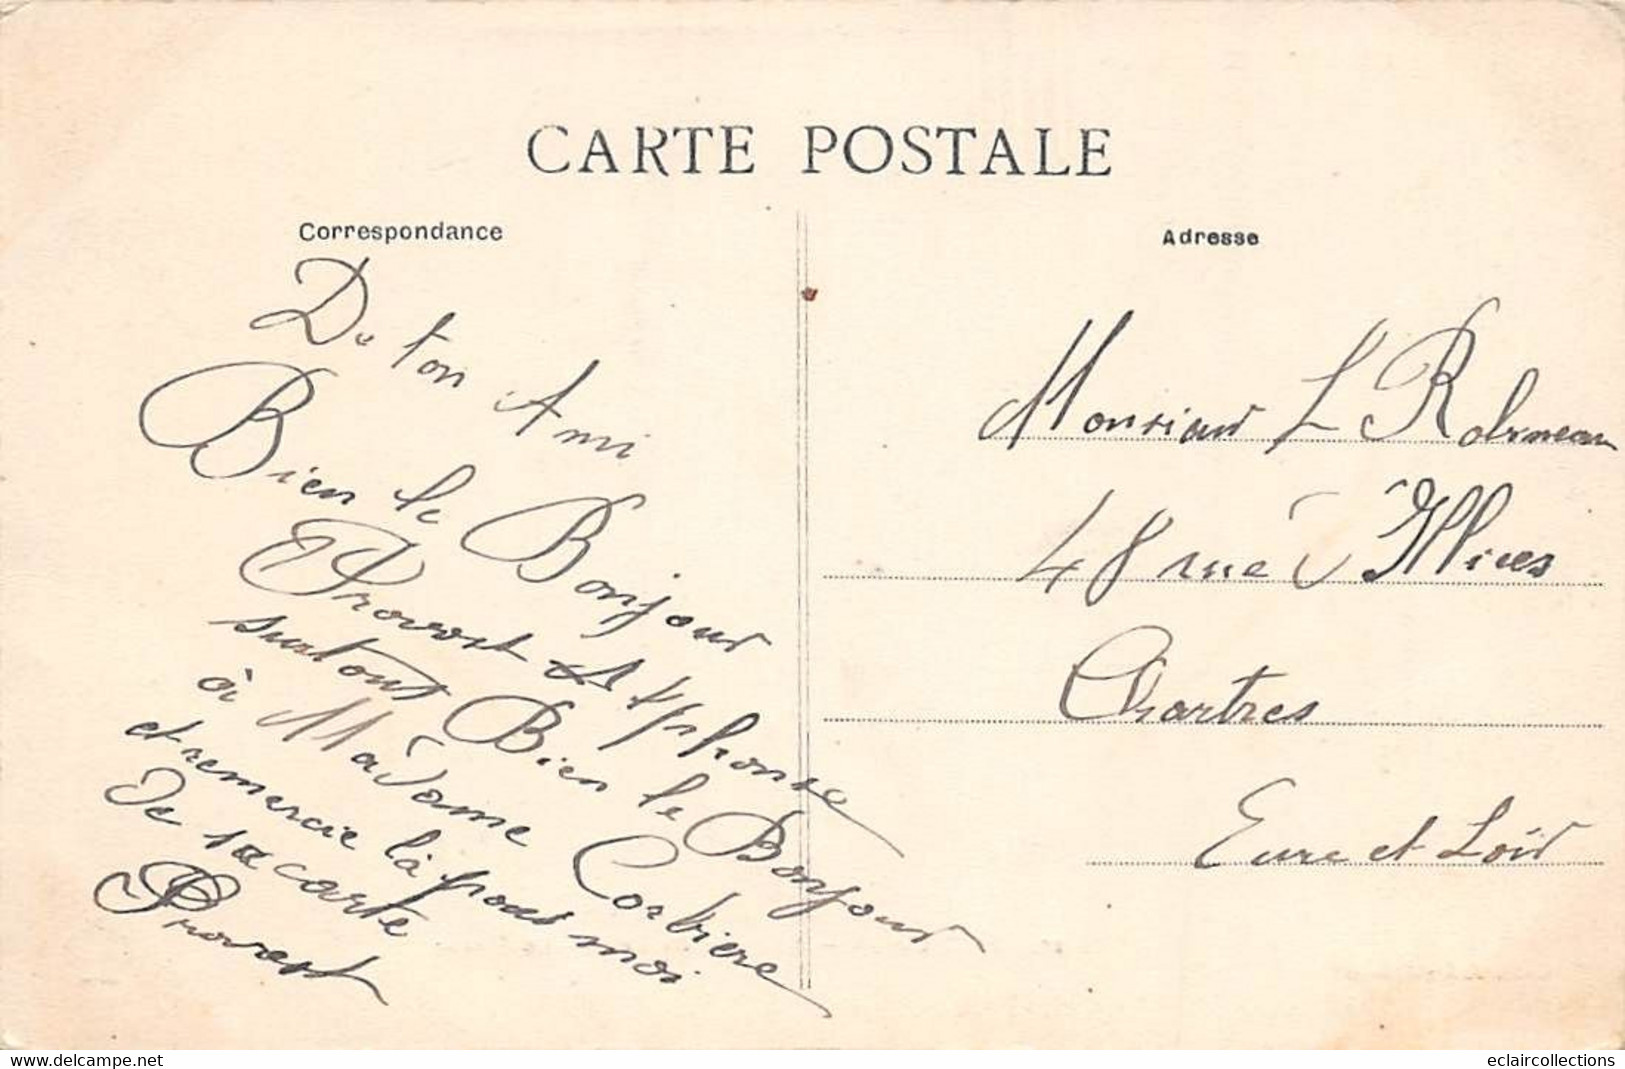 CARTE POSTALE
Correspondance
De ton Ami
Bien le Bonjour
Provost et Alphonse
surtout Bien le Bonjour
à Madame Corbiere
et remercie là pour moi
De sa carte
Provost
Adresse
Monsieur L Robineau
48 rue d'Illiers
Chartres
Eure et Loir
www.delcampe.net
eclaircollections